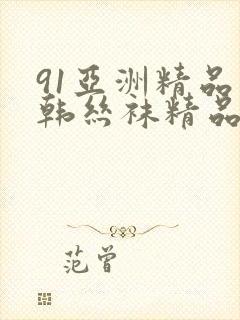 91亞洲精品
韩丝袜精品
范曾